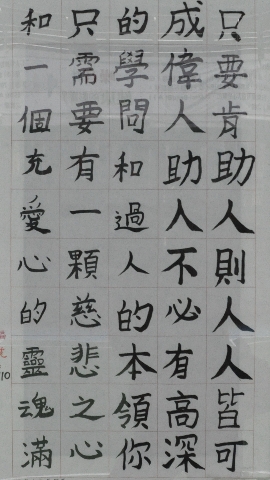 只要肯助人則人人皆可
成偉人助人不必有高深
的學問和過人的本領你
只需要有一顆慈悲之心
和一個充愛心的靈魂滿